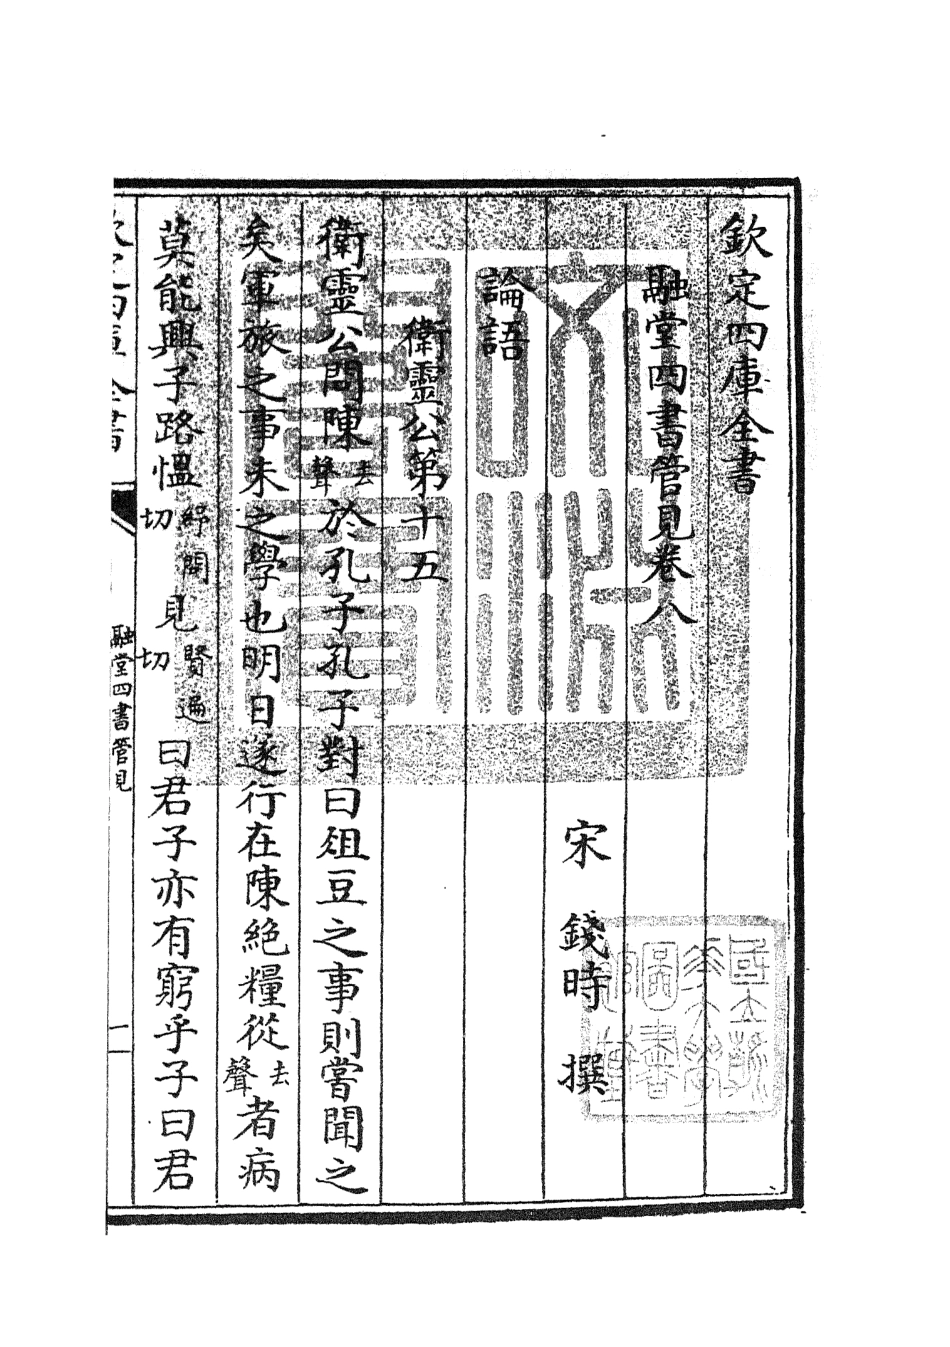 欽定四庫全書
融堂四書管見卷八
宋 錢時 撰
論語
衛靈公第十五
衛靈公問陳去聲於孔子孔子對曰俎豆之事則嘗聞之
矣軍旅之事未之學也明日遂行在陳絶糧從去聲者病
莫能興子路愠紆問切見賢遍切曰君子亦有窮乎子曰君
欽定四庫全書
融堂四書管見
一